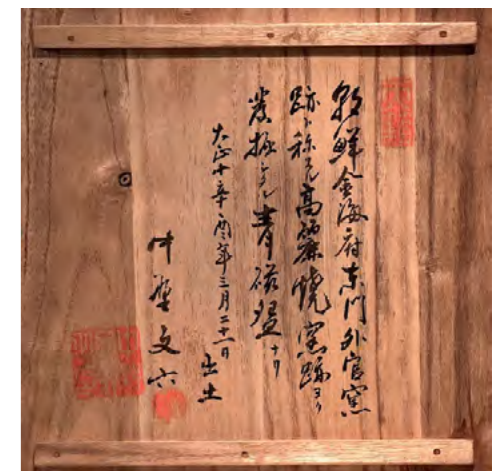 朝鮮金海府東門外官窯
跡ト称スル高麗焼窯跡ヨリ
発掘シタル青磁ナリ
大正十辛酉年三月二十一日
出土
文六